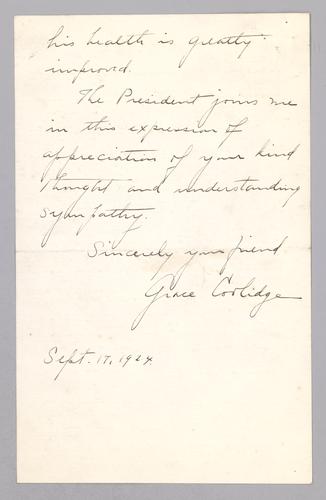 his health is greatly
improved.
The President joins me
in this expression of
appreciation of your kind
thought and understanding
sympathy.
Sincerely your friend
Grace Coolidge
Sept. 17, 1924.